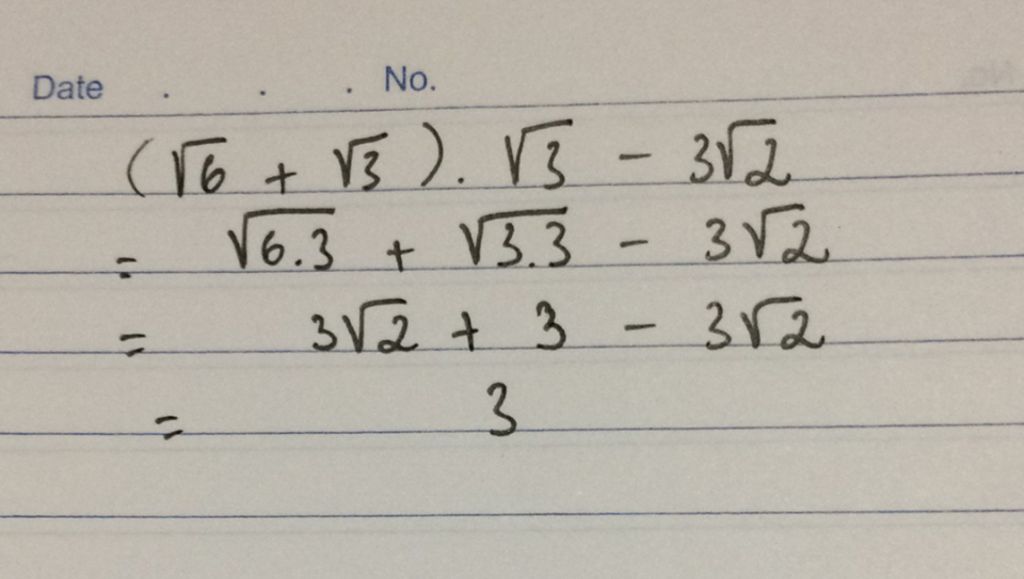 Date . . . No.
(√6 + √3). √3 - 3√2
= √6.3 + √3.3 - 3√2
= 3√2 + 3 - 3√2
= 3